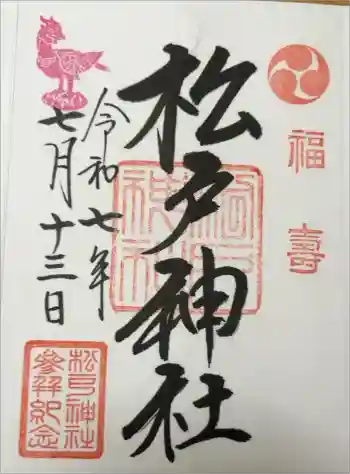 福壽
松戸神社
松戸神社
令和七年
七月十三日
松戸神社
參拜紀念